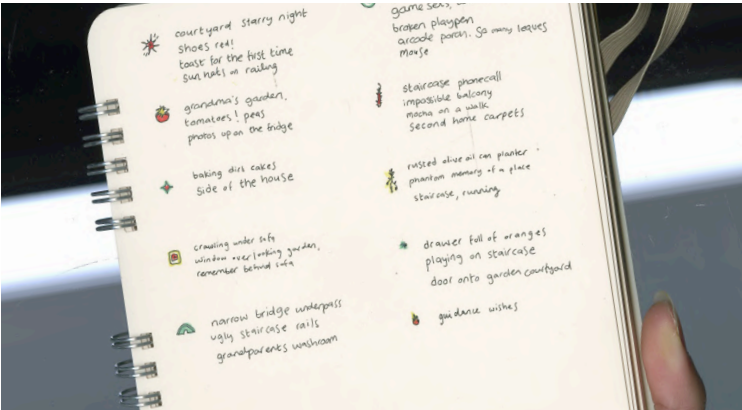 courtyard starry night
shoes red!
toast for the first time
sun hats on railing
grandma's garden,
tomatoes! peas
photos up on the fridge
baking dirt cakes
side of the house
crawling under sofa
window overlooking garden,
remember behind sofa
narrow bridge underpass
ugly staircase rails
grandparents washroom
game sets,
broken playpen
arcade porch. So many leaves
mouse
staircase phonecall
impossible balcony
mocha on a walk
second home carpets
rusted olive oil can planter
phantom memory of a place
staircase, running
drawer full of oranges
playing on staircase
door onto garden courtyard
guidance wishes